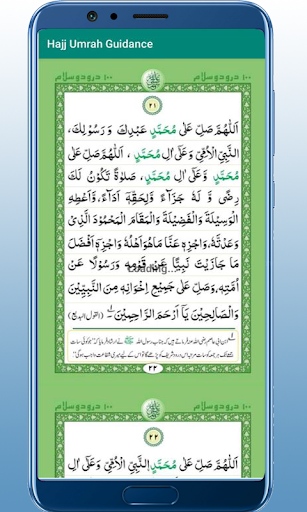 Hajj Umrah Guidance
۱۰۰ درود و سلام
۱۰۰ درود و سلام
۲۱
اَللّٰهُمَّ صَلِّ عَلٰى مُحَمَّدٍ عَبْدِكَ وَ رَسُوْلِكَ،
النَّبِيِّ الْاُمِّيِّ وَعَلٰٓى اٰلِ مُحَمَّدٍ ، اَللّٰهُمَّ صَلِّ عَلٰى
مُحَمَّدٍ وَّ عَلٰٓى اٰلِ مُحَمَّدٍ، صَلٰوةً تَكُوْنُ لَكَ
رِضًى وَّ لَهٗ جَزَآءً وَّلِحَقِّهٖٓ اَدَآءً، وَّاَعْطِهِ
الْوَسِيْلَةَ وَالْفَضِيْلَةَ وَالْمَقَامَ الْمَحْمُوْدَ الَّذِيْ
وَعَدْتَّهٗ، وَاجْزِهٖ عَنَّا مَاهُوَ اَهْلُهٗ وَاجْزِهٖٓ اَفْضَلَ
مَا جَازَيْتَ نَبِيًّا عَنْ قَوْمِهٖ وَرَسُوْلًا عَنْ
Loading...
اُمَّتِهٖ وَصَلِّ عَلٰى جَمِيْعِ اِخْوَانِهٖ مِنَ النَّبِيِّيْنَ
وَالصَّالِحِيْنَ يَآ اَرْحَمَ الرَّاحِمِيْنَ (القول البديع)
۲۲
۱۰۰ درود و سلام
۱۰۰ درود و سلام
۲۲
اَللّٰهُمَّ صَلِّ عَلٰى مُحَمَّدٍ النَّبِيِّ الْاُمِّيِّ وَعَلٰٓى اٰلِ